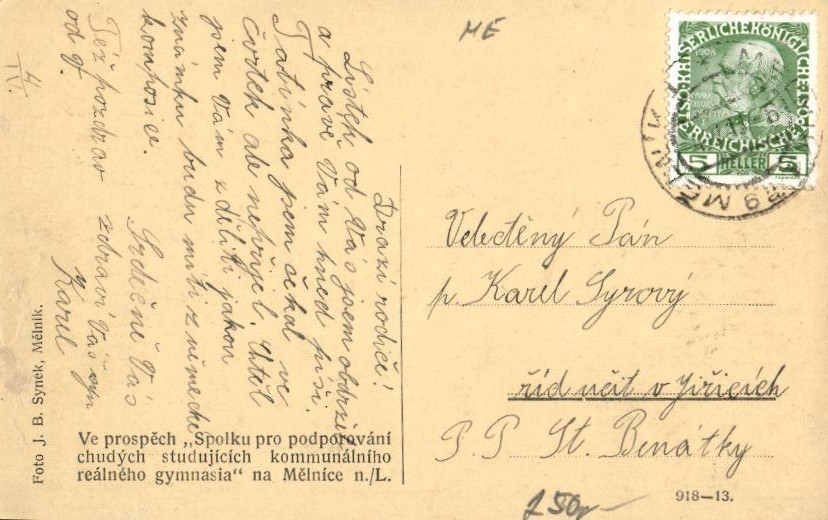 ME
4/IV.
Drazí rodiče!
Lístek od Vás jsem obdržel
a právě Vám hned píši.
Tatínka jsem čekal ve
čtvrtek ale nepřijel. Chtěl
jsem Vám zděliti jakou
známku budu míti z německé
komposice.
Srdečně Vás
zdraví Váš syn
Karel
Též pozdrav
od
K.K. ÖSTERREICHISCHE POST
1908
5 HELLER 5
MĚLNÍK
Velectěný Pán
p. Karel Syrový
říd učit v Jiřicích
P. P. St. Benátky
Foto J. B. Synek, Mělník.
Ve prospěch „Spolku pro podporování
chudých studujících kommunálního
reálného gymnasia" na Mělníce n./L.
918—13.
250,—